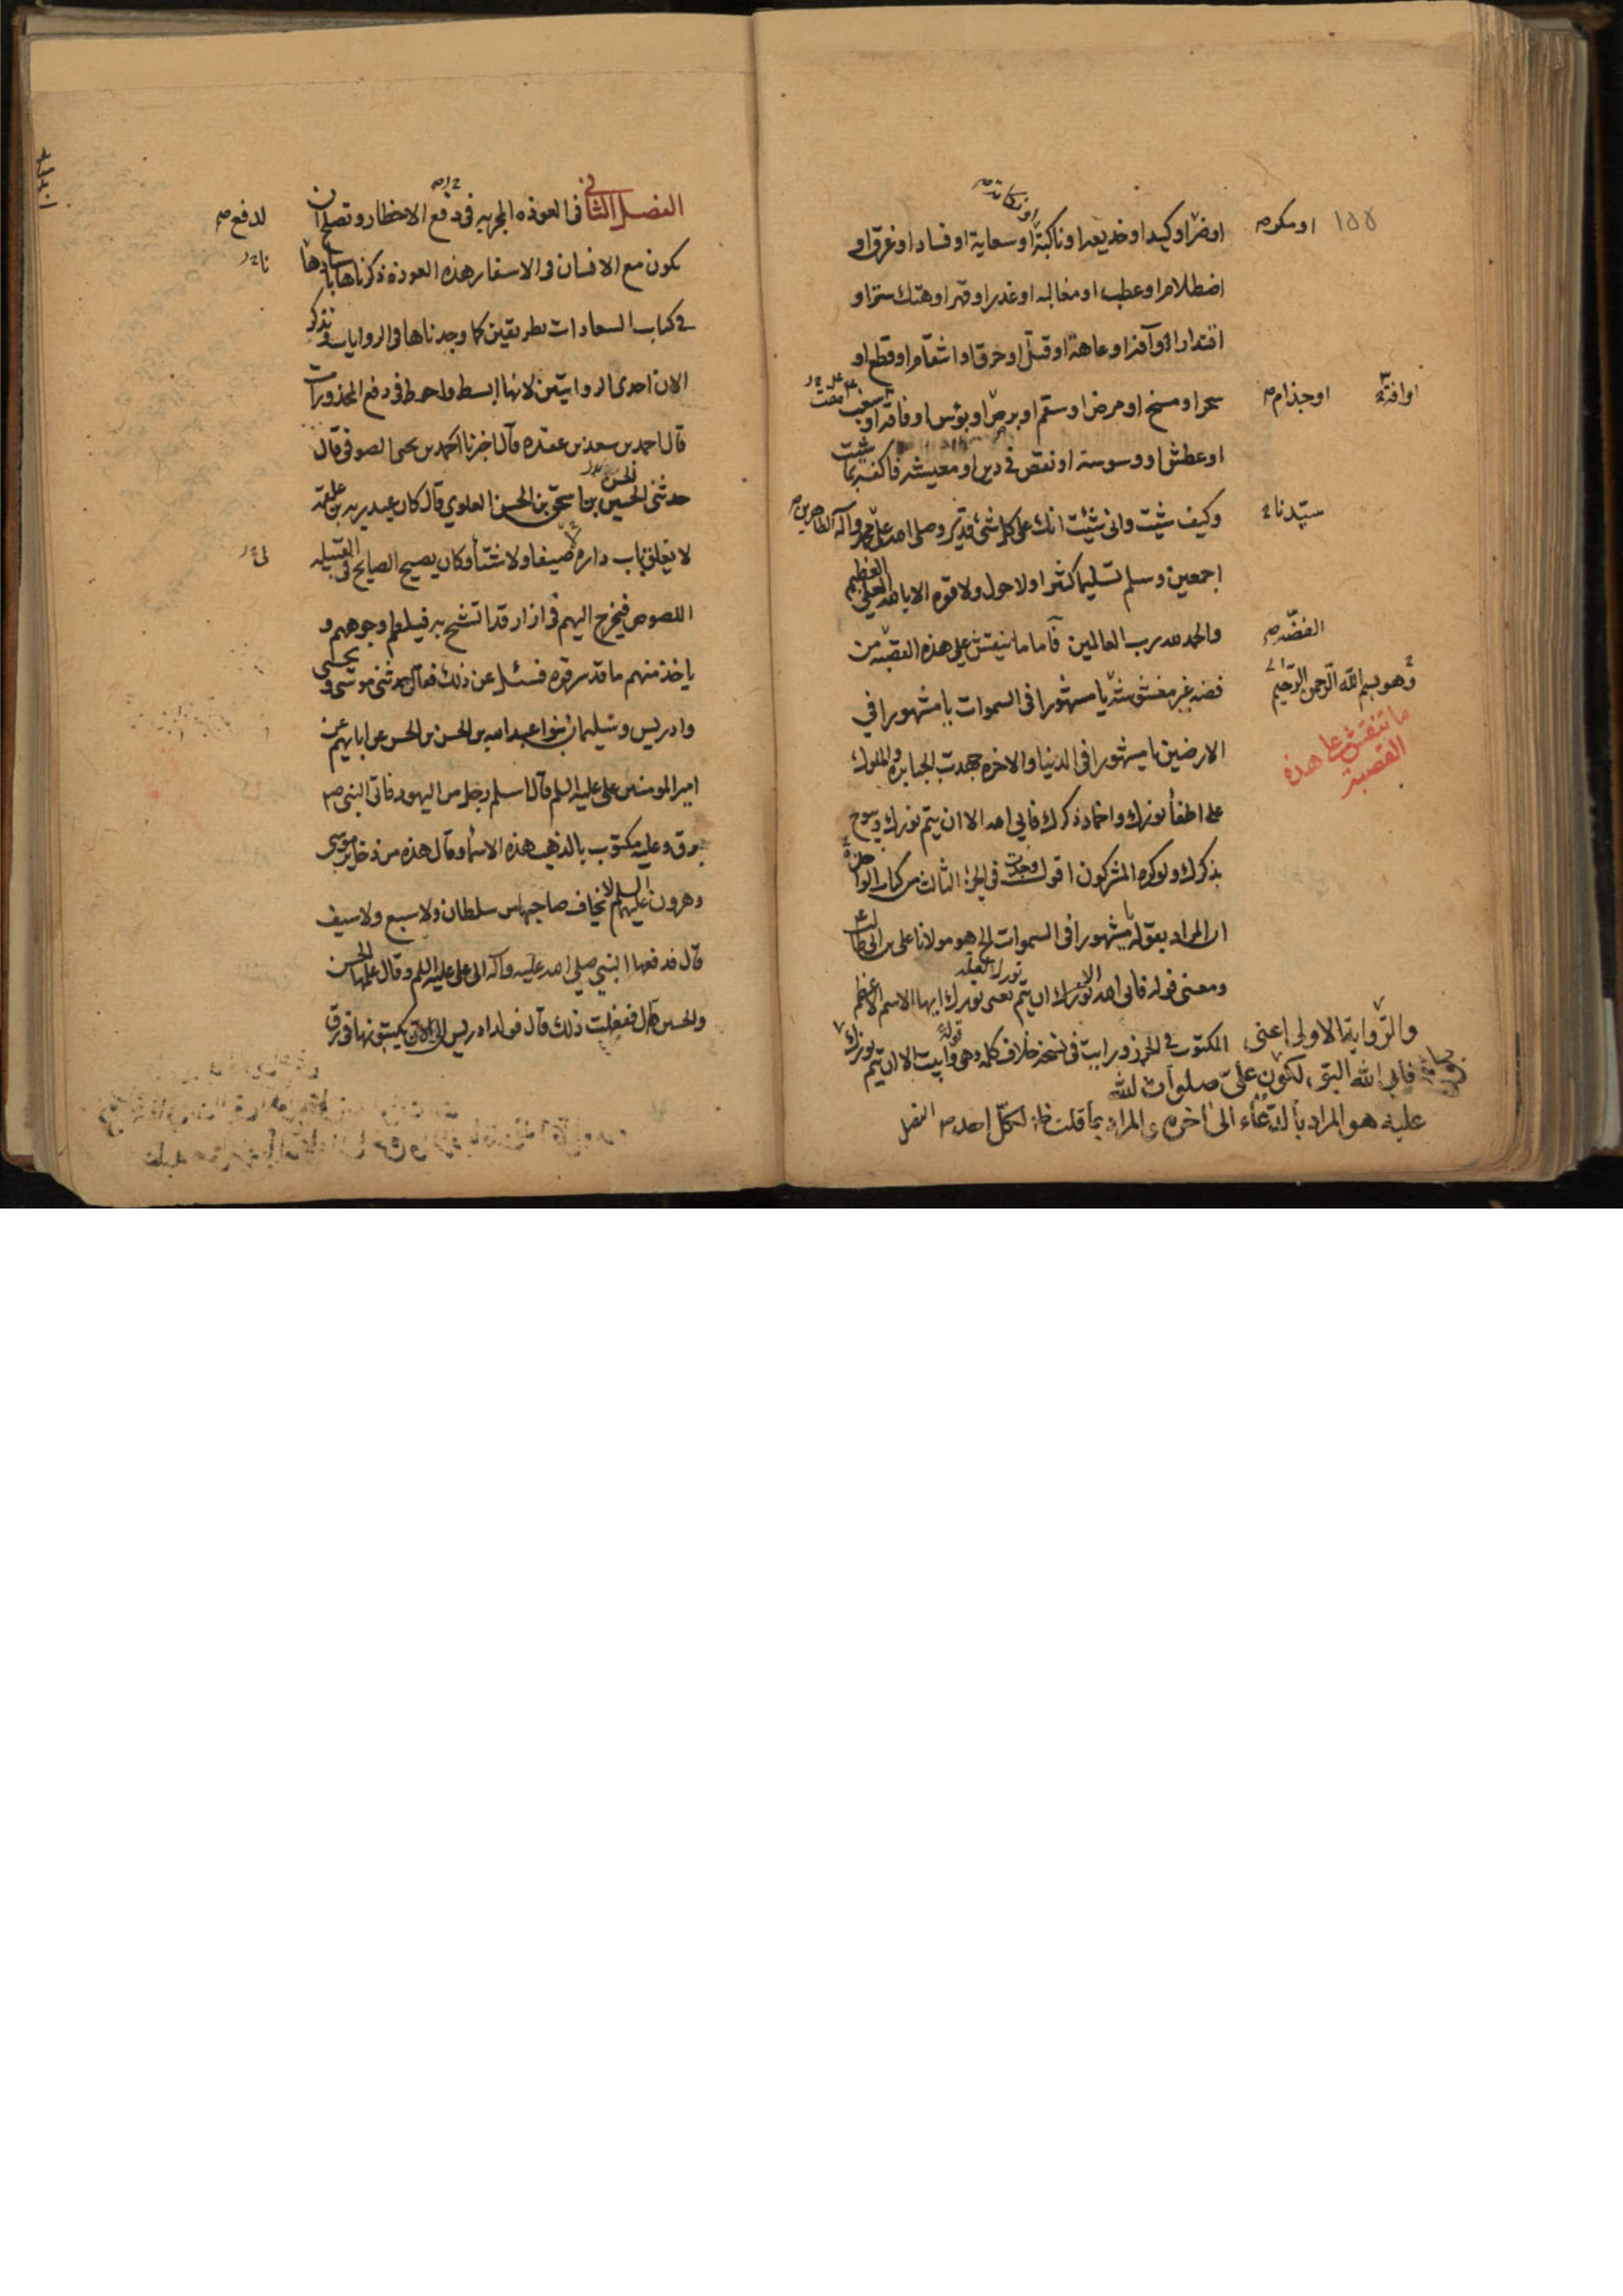 ١٥٥
او مكر
او ضر او كيد او خديعة او نكبة او سعاية او فساد او غرق او
اصطلام او عطب او مغالبة او غدر او قهر او هتك ستر او
اقتدار او آفة او عاهة او قتل او حرق او انتقام او قطع او
سحر او مسخ او مرض او سقم او برص او بؤس او فاقة او سغب
او جذام
او آفة
او عطش او وسوسة او نقص في دين او معيشة فاكفنيه بما شئت
وكيف شئت وانى شئت انك على كل شيء قدير وصلى الله على محمد وآله الطاهرين
سيدنا
اجمعين وسلم تسليما كثيرا ولا حول ولا قوة الا بالله العلي العظيم
والحمد لله رب العالمين فاما ما ينقش على هذه القصبة من
الفضة
فضة غير مغشوشة يا مشهورا في السموات يا مشهورا في
وهو بسم الله الرحمن الرحيم
ما تنقش على هذه
القصبة
الارضين يا مشهورا في الدنيا والاخرة جهدت الجبابرة والملوك
على اطفاء نورك واخماد ذكرك فابى الله الا ان يتم نورك ويبوح
بذكرك ولو كره المشركون اقول وجدت في الجزء الثالث من كتاب الواحدة
ان المراد بقوله يا مشهورا في السموات الخ هو مولانا علي بن ابي طالب
ومعنى قوله فابى الله الا ان يتم نورك يعني نورك ايها الاسم الاعظم
المكتوب في الحرز ورايت في نسخة خلاف كلمة وهي وابيت الا ان يتم نورك
والرواية الاولى اعني
فابى الله اليق لكون علي صلوات الله
عليه هو المراد بالدعاء الى اخره
الفصل
الفصل الثاني في العوذة المجربة في دفع الاخطار وتصلح ان
لدفع
تكون مع الانسان في الاسفار هذه العوذة ذكرناها باسنادها
في كتاب السعادات بطريقين كما وجدناها في الروايات ونذكر
الان احدى الروايتين لانها ابسط واحوط في دفع المحذورات
قال احمد بن سعد بن عقدة قال اخبرنا احمد بن يحيى الصوفي قال
حدثني الحسين بن اسحق بن الحسن العلوي قال كان عبد ربه بن علقمة
لا يغلق باب داره صيفا ولا شتأ وكان يصيح الصايح في القبيلة
اللصوص فيخرج اليهم في ازار قد اتشح به فيلطم وجوههم و
ياخذ منهم ما قد سرقوه فسئل عن ذلك فقال حدثني موسى ويحيى
وادريس وسليمان بنوا عبد الله بن الحسن بن الحسن عن ابايهم عن
امير المومنين علي عليه السلم قال اسلم رجل من اليهود فاتى النبي ص
برق وعليه مكتوب بالذهب هذه الاسماء وقال هذه من ذخاير موسى
وهرون عليهم السلم لا يخاف صاحبها من سلطان ولا سبع ولا سيف
قال فدفعها النبي صلى الله عليه وآله الى علي عليه السلم وقال علمها الحسن
والحسين قال ففعلت ذلك قال فولد ادريس الى الان يكتبونها في رق